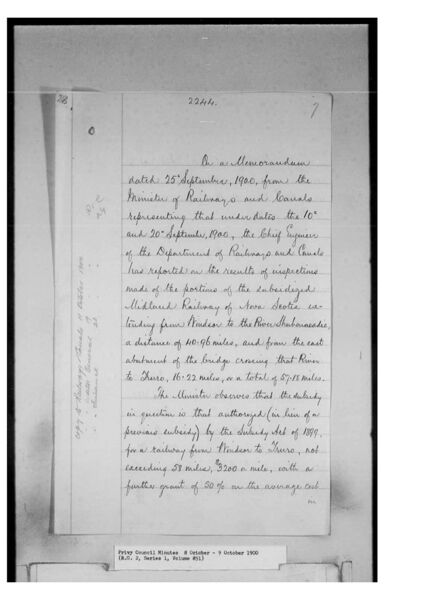 28
2244.
7
0
On a Memorandum
dated 25th September, 1900, from the
Minister of Railways and Canals
representing that under dates the 10th
and 20th September, 1900, the Chief Engineer
of the Department of Railways and Canals
has reported on the results of inspections
made of the portions of the subsidized
Midland Railway of Nova Scotia ex-
tending from Windsor to the River Shubenacadie,
a distance of 40.96 miles, and from the east
abutment of the bridge crossing that River
to Truro, 16.22 miles, or a total of 57.18 miles.
The Minister observes that the subsidy
in question is that authorized (in lieu of a
previous subsidy) by the Subsidy Act of 1899,
for a railway from Windsor to Truro, not
exceeding 58 miles, $3200 a mile, with a
further grant of 50% on the average cost
in
Copy to Railways & Canals October 1900
Privy Council Minutes 8 October - 9 October 1900
(R.G. 2, Series 1, Volume 851)